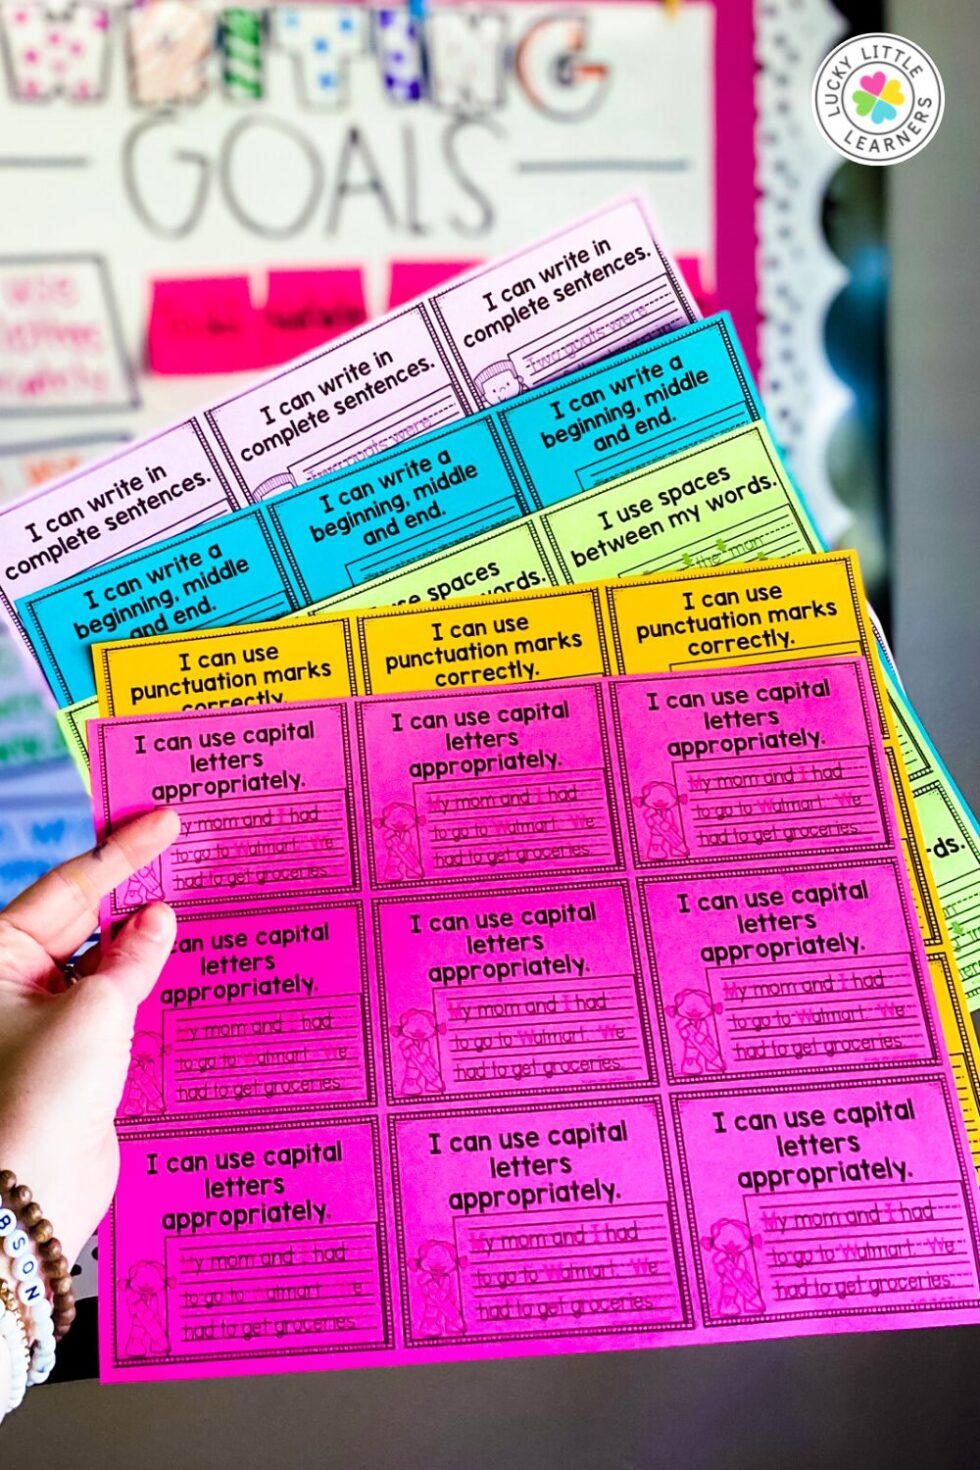 WRITING
GOALS
LUCKY LITTLE
LEARNERS
I can write in
complete sentences.
I can write in
complete sentences.
I can write in
complete sentences.
Two goats were
Two goats were
I can write a
beginning, middle
and end.
I can write a
beginning, middle
and end.
I can write a
beginning, middle
and end.
I use spaces
between my words.
the man
use spaces
words.
I can use
punctuation marks
correctly.
I can use
punctuation marks
correctly.
I can use
punctuation marks
correctly.
I can use capital
letters
appropriately.
y mom and I had
to go to Walmart. We
had to get groceries.
I can use capital
letters
appropriately.
My mom and I had
to go to Walmart. We
had to get groceries.
I can use capital
letters
appropriately.
My mom and I had
to go to Walmart. We
had to get groceries.
can use capital
letters
appropriately.
My mom and I had
to go to Walmart. We
had to get groceries.
I can use capital
letters
appropriately.
My mom and I had
to go to Walmart. We
had to get groceries.
I can use capital
letters
appropriately.
My mom and I had
to go to Walmart. We
had to get groceries.
I can use capital
letters
appropriately.
My mom and I had
to go to Walmart. We
had to get groceries.
I can use capital
letters
appropriately.
My mom and I had
to go to Walmart. We
had to get groceries.
I can use capital
letters
appropriately.
My mom and I had
to go to Walmart. We
had to get groceries.
rds.
BSON